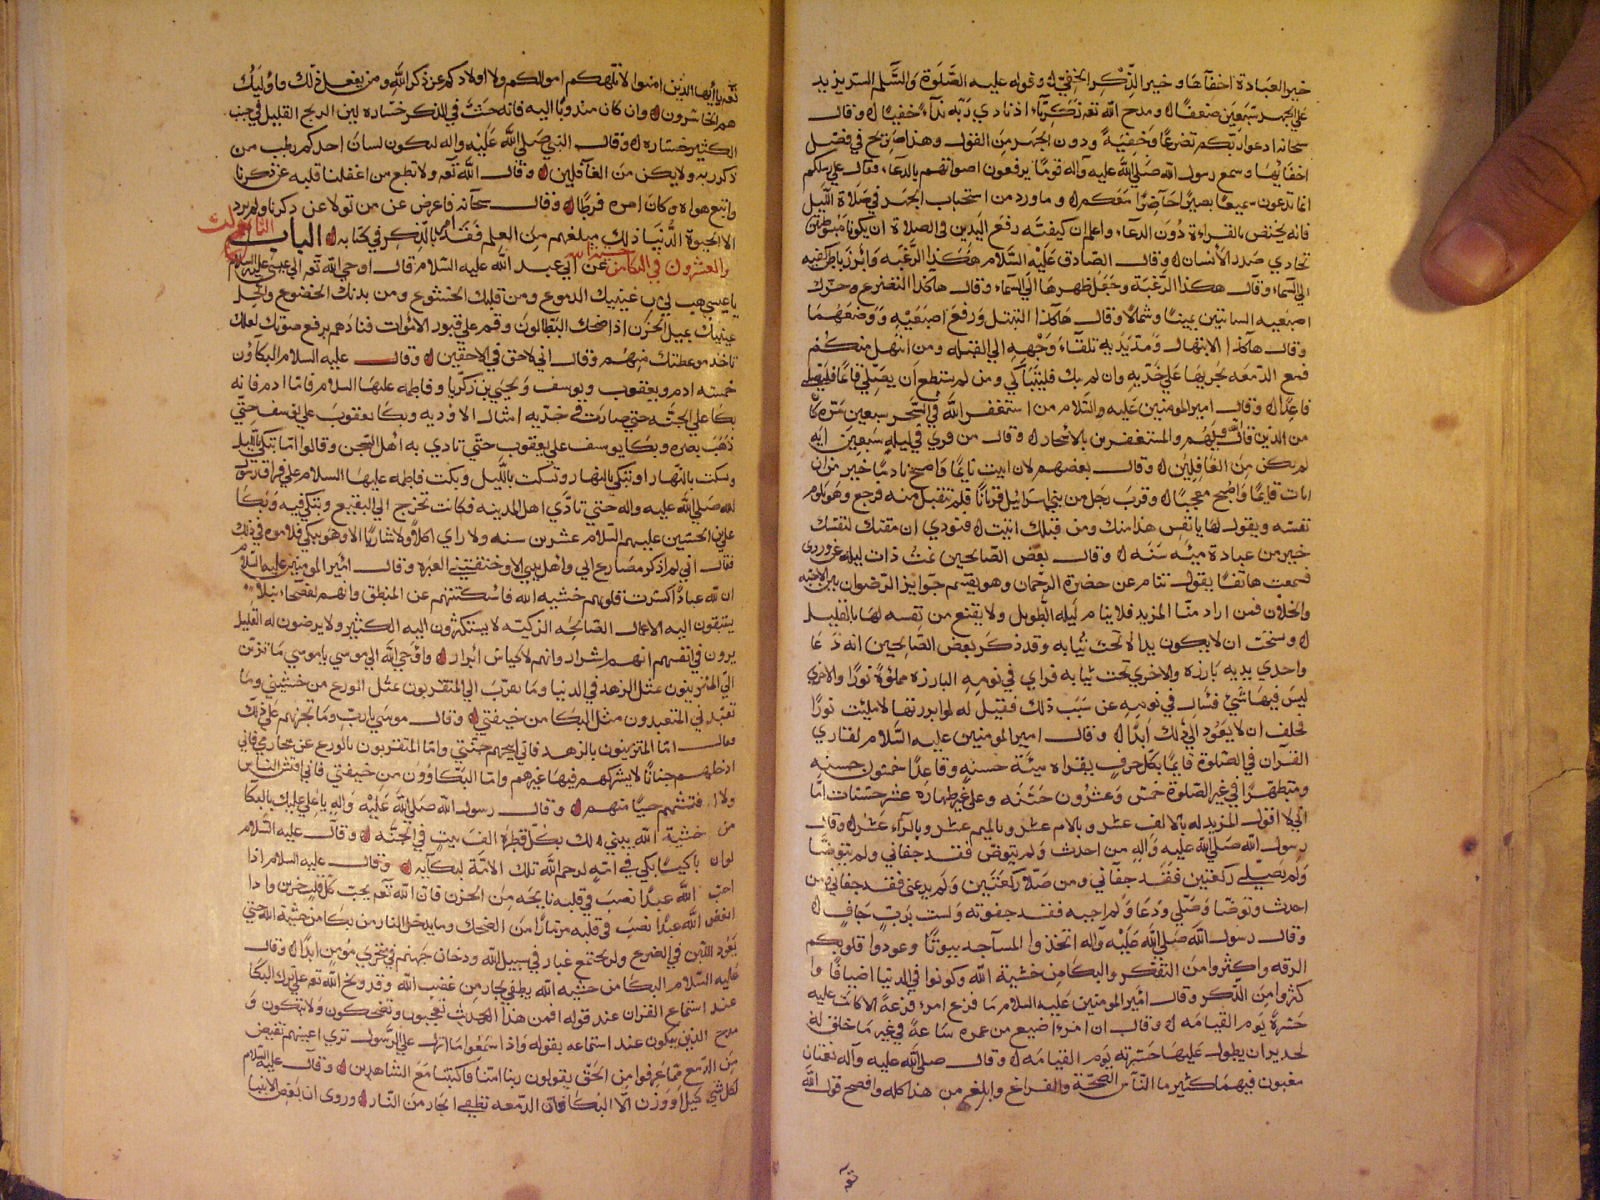 خير العبادة اخفاها وخير الذكر الخفي وقوله عليه الصلوة والسلم السر يزيد
على الجهر سبعين ضعفا ومدح الله تعه زكريا اذ نادى ربه ندآء خفيا وقال
سحانه ادعوا ربكم تضرعا وخفية ودون الجهر من القول وهذا صريح في فضل
اخفايها وسمع رسول الله صلى الله عليه وآله قوما يرفعون اصواتهم بالدعآء فقال على رسلكم
انما تدعون سميعا بصيرا حاضرا معكم وما ورد من استحباب الجهر في صلاة الليل
فانه يختص بالقراءة دون الدعآء واعلم ان كيفته رفع اليدين في الصلاة ان يكونا مبسوطتين
تحاذي صدر الأنسان وقال الصادق عليه السلام هكذا الرغبة وابرز باطن كفيه
الى السمآء وقال هكذا الرهبة وجعل ظهرها الى السمآء وقال هاكذا التضرع وحرك
اصبعيه السبابتين يمينا وشمالا وقال هاكذا التبتل ورفع اصبعيه ووضعهما
وقال هاكذا الابتهال ومد يديه تلقآء وجهه الى القبله ومن ابتهل منكم
فمع الدمعه يجريها على خديه وان لم يبك فليتباكى ومن لم يستطع ان يصلي قاعا فليصلي
قاعدا وقال امير المومنين عليه والسلام من استغفر الله في السحر سبعين مرة كان
من الذين قال الله فيهم والمستغفرين بالاسحار وقال من قرئ في ليله سبعين ايه
لم يكن من الغافلين وقال بعضهم لان ابيت نايما واصبح نادما خير من ان
ابات قايما واصبح معجبا وقرب رجل من بني اسرائيل قربانا فلم تتقبل منه فرجع وهو يلوم
نفسه ويقول لها يا نفس هذا منك ومن قبلك اتيت فنودي ان مقتك لنفسك
خير من عبادة ميه سنه وقال بعض الصالحين نمت ذات ليله عن وردي
فسمعت هاتفا يقول تنام عن حضرة الرحمان وهو يقسم جوايز الرضوان بين الاحبه
والخلان فمن اراد منا المزيد فلا ينام ليله الطويل ولا يقنع من نفسه لها بالقليل
وسخت ان لا يكون يدا لا تحت ثيابه وقد ذكر بعض الصالحين انه دعا
واحدي يديه بارزه والاخرى تحت ثيابه فراى في نومه البارزه مملؤة نورا والاخرى
ليس فيها شيئ فسال في نومه عن سبب ذلك فقيل له لو ابرزتها لامليت نورا
فحلف ان لا يعود الى ذلك ابدا وقال امير المومنين عليه السلام لقاري
القرآن في الصلوة قايما بكل حرف يقراه ميئة حسنه وقاعدا خمسون حسنه
ومتطهرا في غير الصلوة خمس وعشرون حسنه وعلى غير طهاره عشر حسنات اما
اني لا اقول المر يدله بالالف عشر وبالام عشر وبالميم عشر وبالرآء عشر وقال
رسول الله صلى الله عليه واله من احدث ولم يتوض فقد جفاني ولم يتوضا
ولم يصلي ركعتين فقد جفاني ومن صلا ركعتين ولم يدعني فقد جفاني ومن
احدث وتوضا وصلي ودعا ولم اجبه فقد جفوته ولست برب جاف
وقال رسول الله صلى الله عليه وآله اتخذوا المساجد بيوتا وعودوا قلوبكم
الرقه واكثروا من التفكر والبكا من خشية الله وكونوا في الدنيا اضيافا وا
كثروا من الذكر وقال امير المومنين عليه السلام ما فزع امرء فزعة الا كانت عليه
حسرة يوم القيامه وقال ان امرءا ضيع من عمره ساعة في غير ما خلق له
لجدير ان يطول عليها حسرته يوم القيامه وقال صلى الله عليه وآله نعمتان
مغبون فيهما كثير ما الناس الصحة والفراغ وابلغ من هذا كله وافصح قول الله
تعه
تعه يا أيها الذين امنوا لا تلهكم اموالكم ولا اولادكم عن ذكر الله ومن يفعل ذلك فاوليك
هم الخاسرون وان كان مندوبا اليه فانه حث في الذكر خساره لين الربح القليل في جنب
الكثير خساره وقال النبي صلى الله عليه واله ليكون لسان احدكم رطب من
ذكر ربه ولا يكن من الغآفلين وقال الله تعه ولا تطع من اغفلنا قلبه عن ذكرنا
واتبع هواه وكان امره فرطا وقال سحانه فاعرض عن من تولا عن ذكرنا ولم يرد
الا الحيوة الدنيا ذلك مبلغهم من العلم فقد امر بالذكر في كتابه الباب الثالث
والعشرون في البكا من خشية الله عن أبي عبد الله عليه السلام قال اوحى الله تعه الى عيسى عليه السلام
يا عيسى هب لي من عينيك الدموع ومن قلبك الخشوع ومن بدنك الخضوع واكحل
عينيك بميل الحزن اذا ضحك البطالون وقم على قبور الاموات فنادهم برفع صوتك لعلك
تاخذ موعظتك منهم وقال اني لاحق في الاحقين وقال عليه السلام البكاون
خمسه ادم ويعقوب ويوسف ويحيى بن زكريا وفاطمه عليها السلام فاما ادم فانه
بكا على الجنه حتى صارت في خديه امثال الاوديه وبكا يعقوب على يوسف حتى
ذهب بصره وبكا يوسف على يعقوب حتى تاذى به اهل السجن وقالوا اما تبكي بالليل
وتسكت بالنهار او تبكي بالنهار وتسكت بالليل وبكت فاطمه عليها السلام على فراق رسول
لله صلى الله عليه واله حتى تاذى اهل المدينه فكانت تخرج الى البقيع وتبكي فيه وبكا
علي بن الحسين عليهم السلام عشرين سنه ولا راى اكلا ولا شاربا الا وهو يبكي فلاموه في ذلك
فقال اني لم اذكر مصارع ابي واهل بيتي الا وخنقتني العبره وقال امير المومنين عليه السلام
ان لله عبادا كسرت قلوبهم خشيه الله فاسكتتهم عن المنطق وانهم لفصحاء نبلآء
يستبقون اليه الاعمال الصالحه الزكيه لا يستكثرون اليه الكثير ولا يرضون له القليل
يرون في انفسهم انهم اشرار وانهم لاكياس ابرار واوحى الله الى موسى يا موسى ما تزين
الي المتزينون بمثل الزهد في الدنيا وما تقرب الي المتقربون بمثل الورع من خشيتي وما
تعبد لي المتعبدون مثل البكا من خيفتي وقال موسى يا رب وما تجزيهم على ذلك
فقال اما المتزينون بالزهد فاني ابيحهم جنتي واما المتقربون بالورع عن محارمي فاني
ادخلهم جنانا لا يشركهم فيها غيرهم واما البكاؤون من خيفتي فاني افتش الناس
ولا افتشهم حيا منهم وقال رسول الله صلى الله عليه واله يا علي عليك بالبكا
من خشية الله يبني لك بكل قطرة الف بيت في الجنه وقال عليه السلام
لو ان باكيا بكي في امه لرحم الله تلك الامة لبكآيه وقال عليه السلام اذا
احب الله عبدا نصب في قلبه نايحه من الحزن فان الله تعه يحب كل قلب حزين واذا
ابغض الله عبدا نصب في قلبه مزمارا من الضحك وما يدخل النار من بكا من خشية الله حتى
يعود اللبن في الضرع ولن يجتمع غبار في سبيل الله ودخان جهنم في منخري مومن ابدا وقال
عليه السلام البكا من خشيه الله يطفي بحار من غضب الله وقد وبخ الله تعه على ترك البكا
عند استماع القران عند قوله افمن هذا الحديث تعجبون وتضحكون ولا تبكون و
مدح الذين يبكون عند استماعه بقوله واذا سمعوا ما انزل على الرسول ترى اعينهم تفيض
من الدمع مما عرفوا من الحق يقولون ربنا امنا فاكتبنا مع الشاهدين وقال عليه السلام
لكل شي كيل او وزن الا البكا فان الدمعه تطفي ابحار من النار وروى ان بعض الانبيا